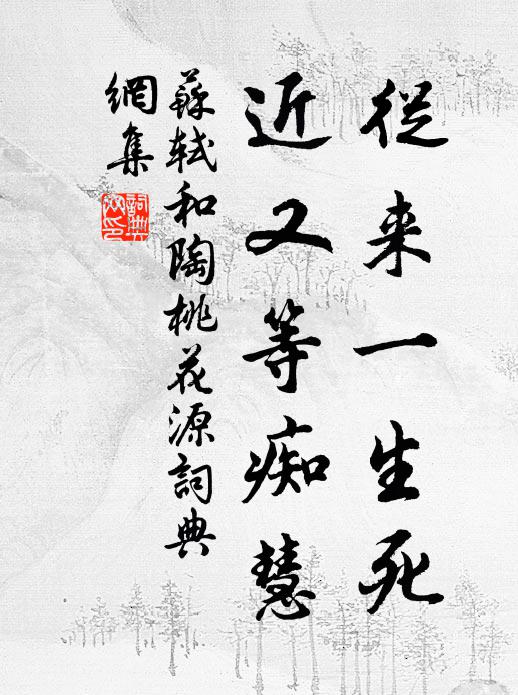 從来一生死
近又等痴慧
蘇軾和陶桃花源詞典
網集
詞典
网印